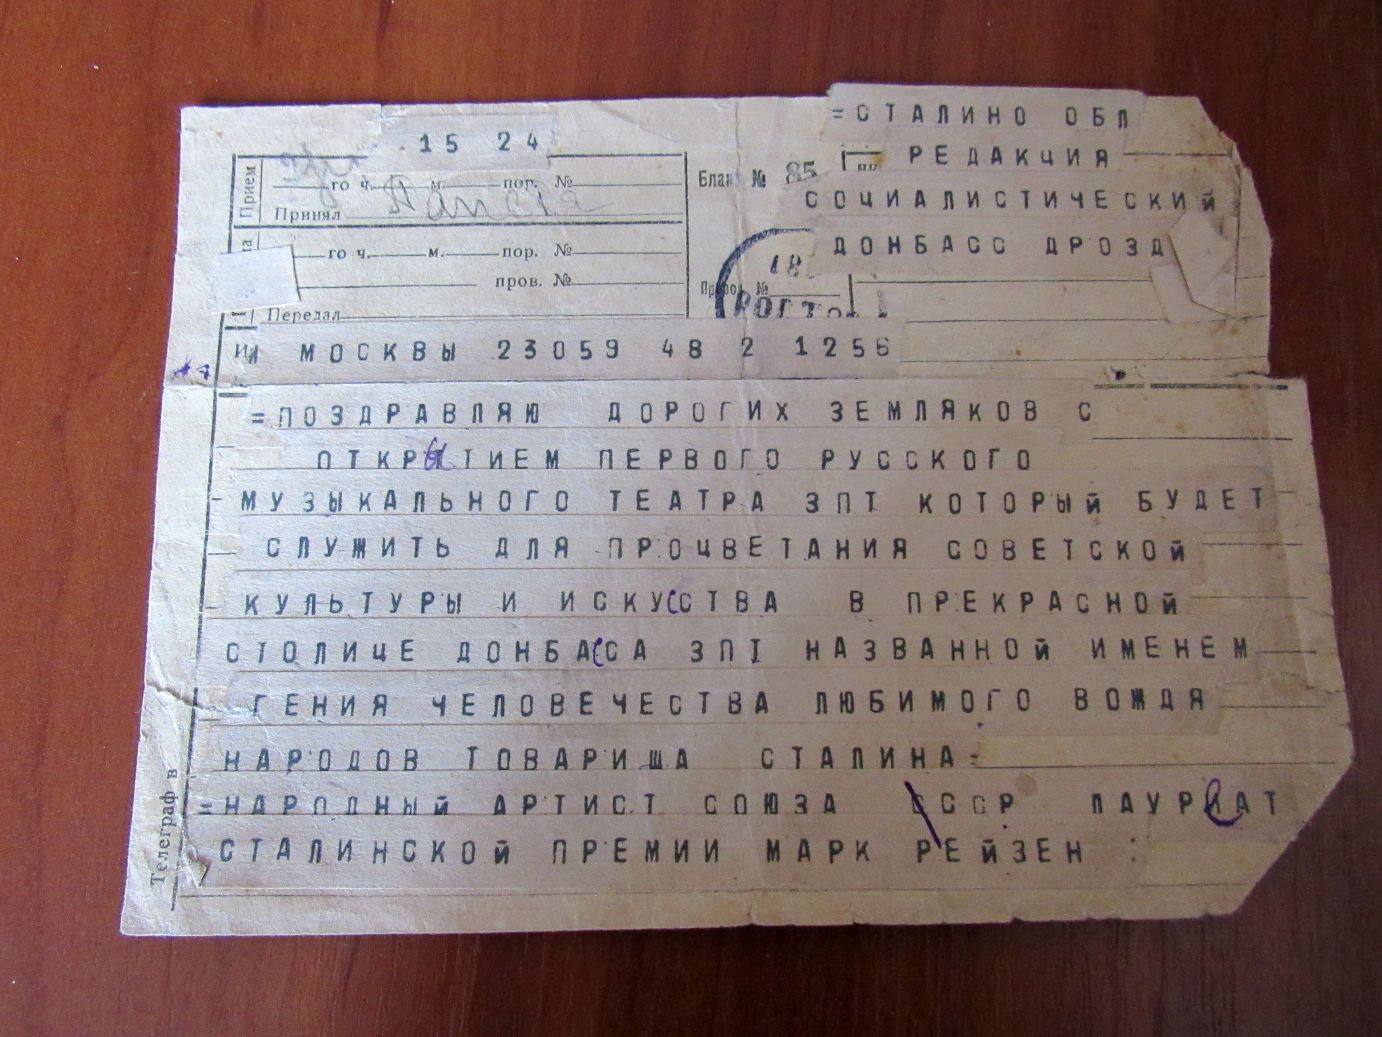 15 24
=СТАЛИНО ОБЛ
РЕДАКЦИЯ
СОЦИАЛИСТИЧЕСКИЙ
ДОНБАСС ДРОЗД
Прием
го ч. м. пор. №
Принял
Бланк № 85
го ч. м. пор. №
пров. №
Передал
МОСКВЫ 23059 48 2 1256
=ПОЗДРАВЛЯЮ ДОРОГИХ ЗЕМЛЯКОВ С
ОТКРЫТИЕМ ПЕРВОГО РУССКОГО
МУЗЫКАЛЬНОГО ТЕАТРА ЗПТ КОТОРЫЙ БУДЕТ
СЛУЖИТЬ ДЛЯ ПРОЦВЕТАНИЯ СОВЕТСКОЙ
КУЛЬТУРЫ И ИСКУССТВА В ПРЕКРАСНОЙ
СТОЛИЦЕ ДОНБАССА ЗПТ НАЗВАННОЙ ИМЕНЕМ
ГЕНИЯ ЧЕЛОВЕЧЕСТВА ЛЮБИМОГО ВОЖДЯ
НАРОДОВ ТОВАРИША СТАЛИНА=
=НАРОДНЫЙ АРТИСТ СОЮЗА СССР ЛАУРЕАТ
СТАЛИНСКОЙ ПРЕМИИ МАРК РЕЙЗЕН
Телеграф в